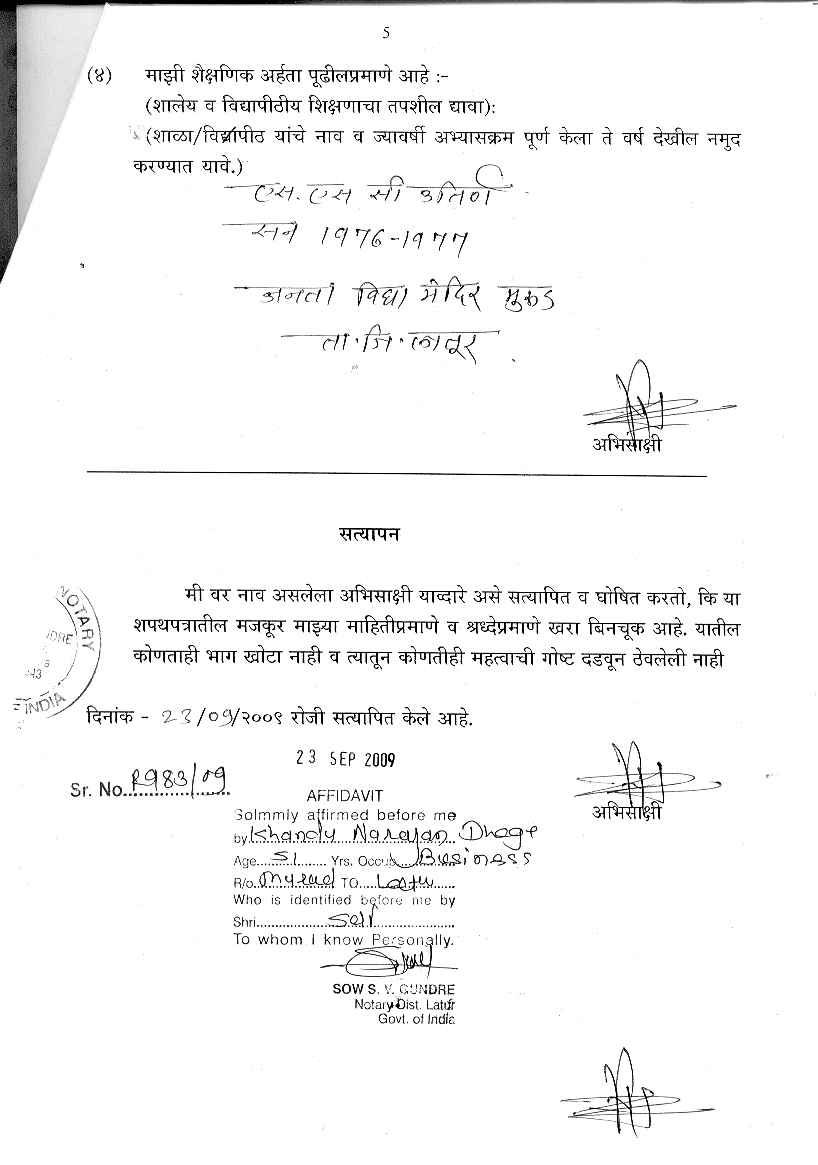 5
(४) माझी शैक्षणिक अर्हता पूढीलप्रमाणे आहे :-
(शालेय व विद्यापीठीय शिक्षणाचा तपशील द्यावा):
(शाळा/विद्यापीठ यांचे नाव व ज्यावर्षी अभ्यासक्रम पूर्ण केला ते वर्ष देखील नमुद
करण्यात यावे.)
एस.एस सी उतिर्ण
सन 1976-1977
जनता विद्या मंदिर मुरुड
ता.जि.लातूर
अभिसाक्षी
सत्यापन
मी वर नाव असलेला अभिसाक्षी याव्दारे असे सत्यापित व घोषित करतो, कि या
शपथपत्रातील मजकूर माझ्या माहितीप्रमाणे व श्रध्देप्रमाणे खरा बिनचूक आहे. यातील
कोणताही भाग खोटा नाही व त्यातून कोणतीही महत्वाची गोष्ट दडवून ठेवलेली नाही
NOTARY
INDIA
दिनांक - 23/09/२००९ रोजी सत्यापित केले आहे.
23 SEP 2009
Sr. No. R983/09
अभिसाक्षी
AFFIDAVIT
Solmmly affirmed before me
by Khandu Narayan Dhage
Age 51 Yrs. Occup Business
R/o. Murud TQ. Latur
Who is identified before me by
Shri. Self
To whom I know Personally.
SOW S. V. GUNDRE
Notary Dist. Latur
Govt. of India